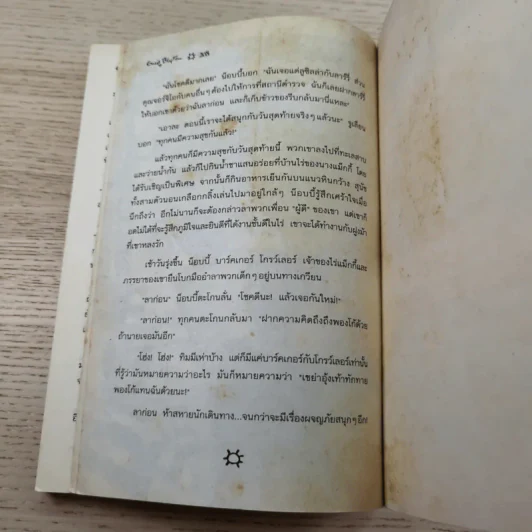 "ฉันโชคดีมากเลย" น็อบบี้บอก "ฉันเจอแค่ลูซิลล่ากับลาร์รี่ ส่วน
คุณจอร์จิโอกับคนอื่นๆ ต้องไปให้การที่สถานีตำรวจ ฉันก็เลยฝากลาร์รี่
ให้บอกเขาด้วยว่าฉันลาก่อน และก็เก็บข้าวของรีบกลับมานี่แหละ"
"เอาละ ตอนนี้เราจะได้สนุกกับวันสุดท้ายจริงๆ แล้วนะ" จูเลียน
บอก "ทุกคนมีความสุขกันแล้ว!"
แล้วทุกคนก็มีความสุขกับวันสุดท้ายนี้ พวกเขาลงไปที่ทะเลสาบ
และว่ายน้ำกัน แล้วก็ไปกินน้ำชาแสนอร่อยที่บ้านไร่ของนางแม็กกี้ โดย
ได้รับเชิญเป็นพิเศษ จากนั้นก็กินอาหารเย็นกันบนแนวหินกว้าง สุนัข
ทั้งสามตัวนอนเกลือกกลิ้งเล่นไปมาอยู่ใกล้ๆ น็อบบี้รู้สึกเศร้าใจเมื่อ
นึกถึงว่า อีกไม่นานก็จะต้องกล่าวลาพวกเพื่อน "ผู้ดี" ของเขา แต่เขาก็
อดไม่ได้ที่จะรู้สึกภูมิใจและยินดีที่ได้งานชั้นดีในไร่ เขาจะได้ทำงานกับฝูงม้า
ที่เขาหลงรัก
เช้าวันรุ่งขึ้น น็อบบี้ บาร์คเกอร์ โกรว์เลอร์ เจ้าของไร่แม็กกี้และ
ภรรยาของเขายืนโบกมืออำลาพวกเด็กๆ อยู่บนทางเกวียน
"ลาก่อน" น็อบบี้ตะโกนลั่น "โชคดีนะ! แล้วเจอกันใหม่!"
"ลาก่อน!" ทุกคนตะโกนกลับมา "ฝากความคิดถึงถึงพองโก้ด้วย
ถ้านายเจอมันอีก"
"โฮ่ง! โฮ่ง!" ทิมมีเห่าบ้าง แต่ก็มีแค่บาร์คเกอร์กับโกรว์เลอร์เท่านั้น
ที่รู้ว่ามันหมายความว่าอะไร มันก็หมายความว่า "เขย่าอุ้งเท้าทักทาย
พองโก้แทนฉันด้วยนะ!"
ลาก่อน ห้าสหายนักเดินทาง...จนกว่าจะมีเรื่องผจญภัยสนุกๆ อีก!